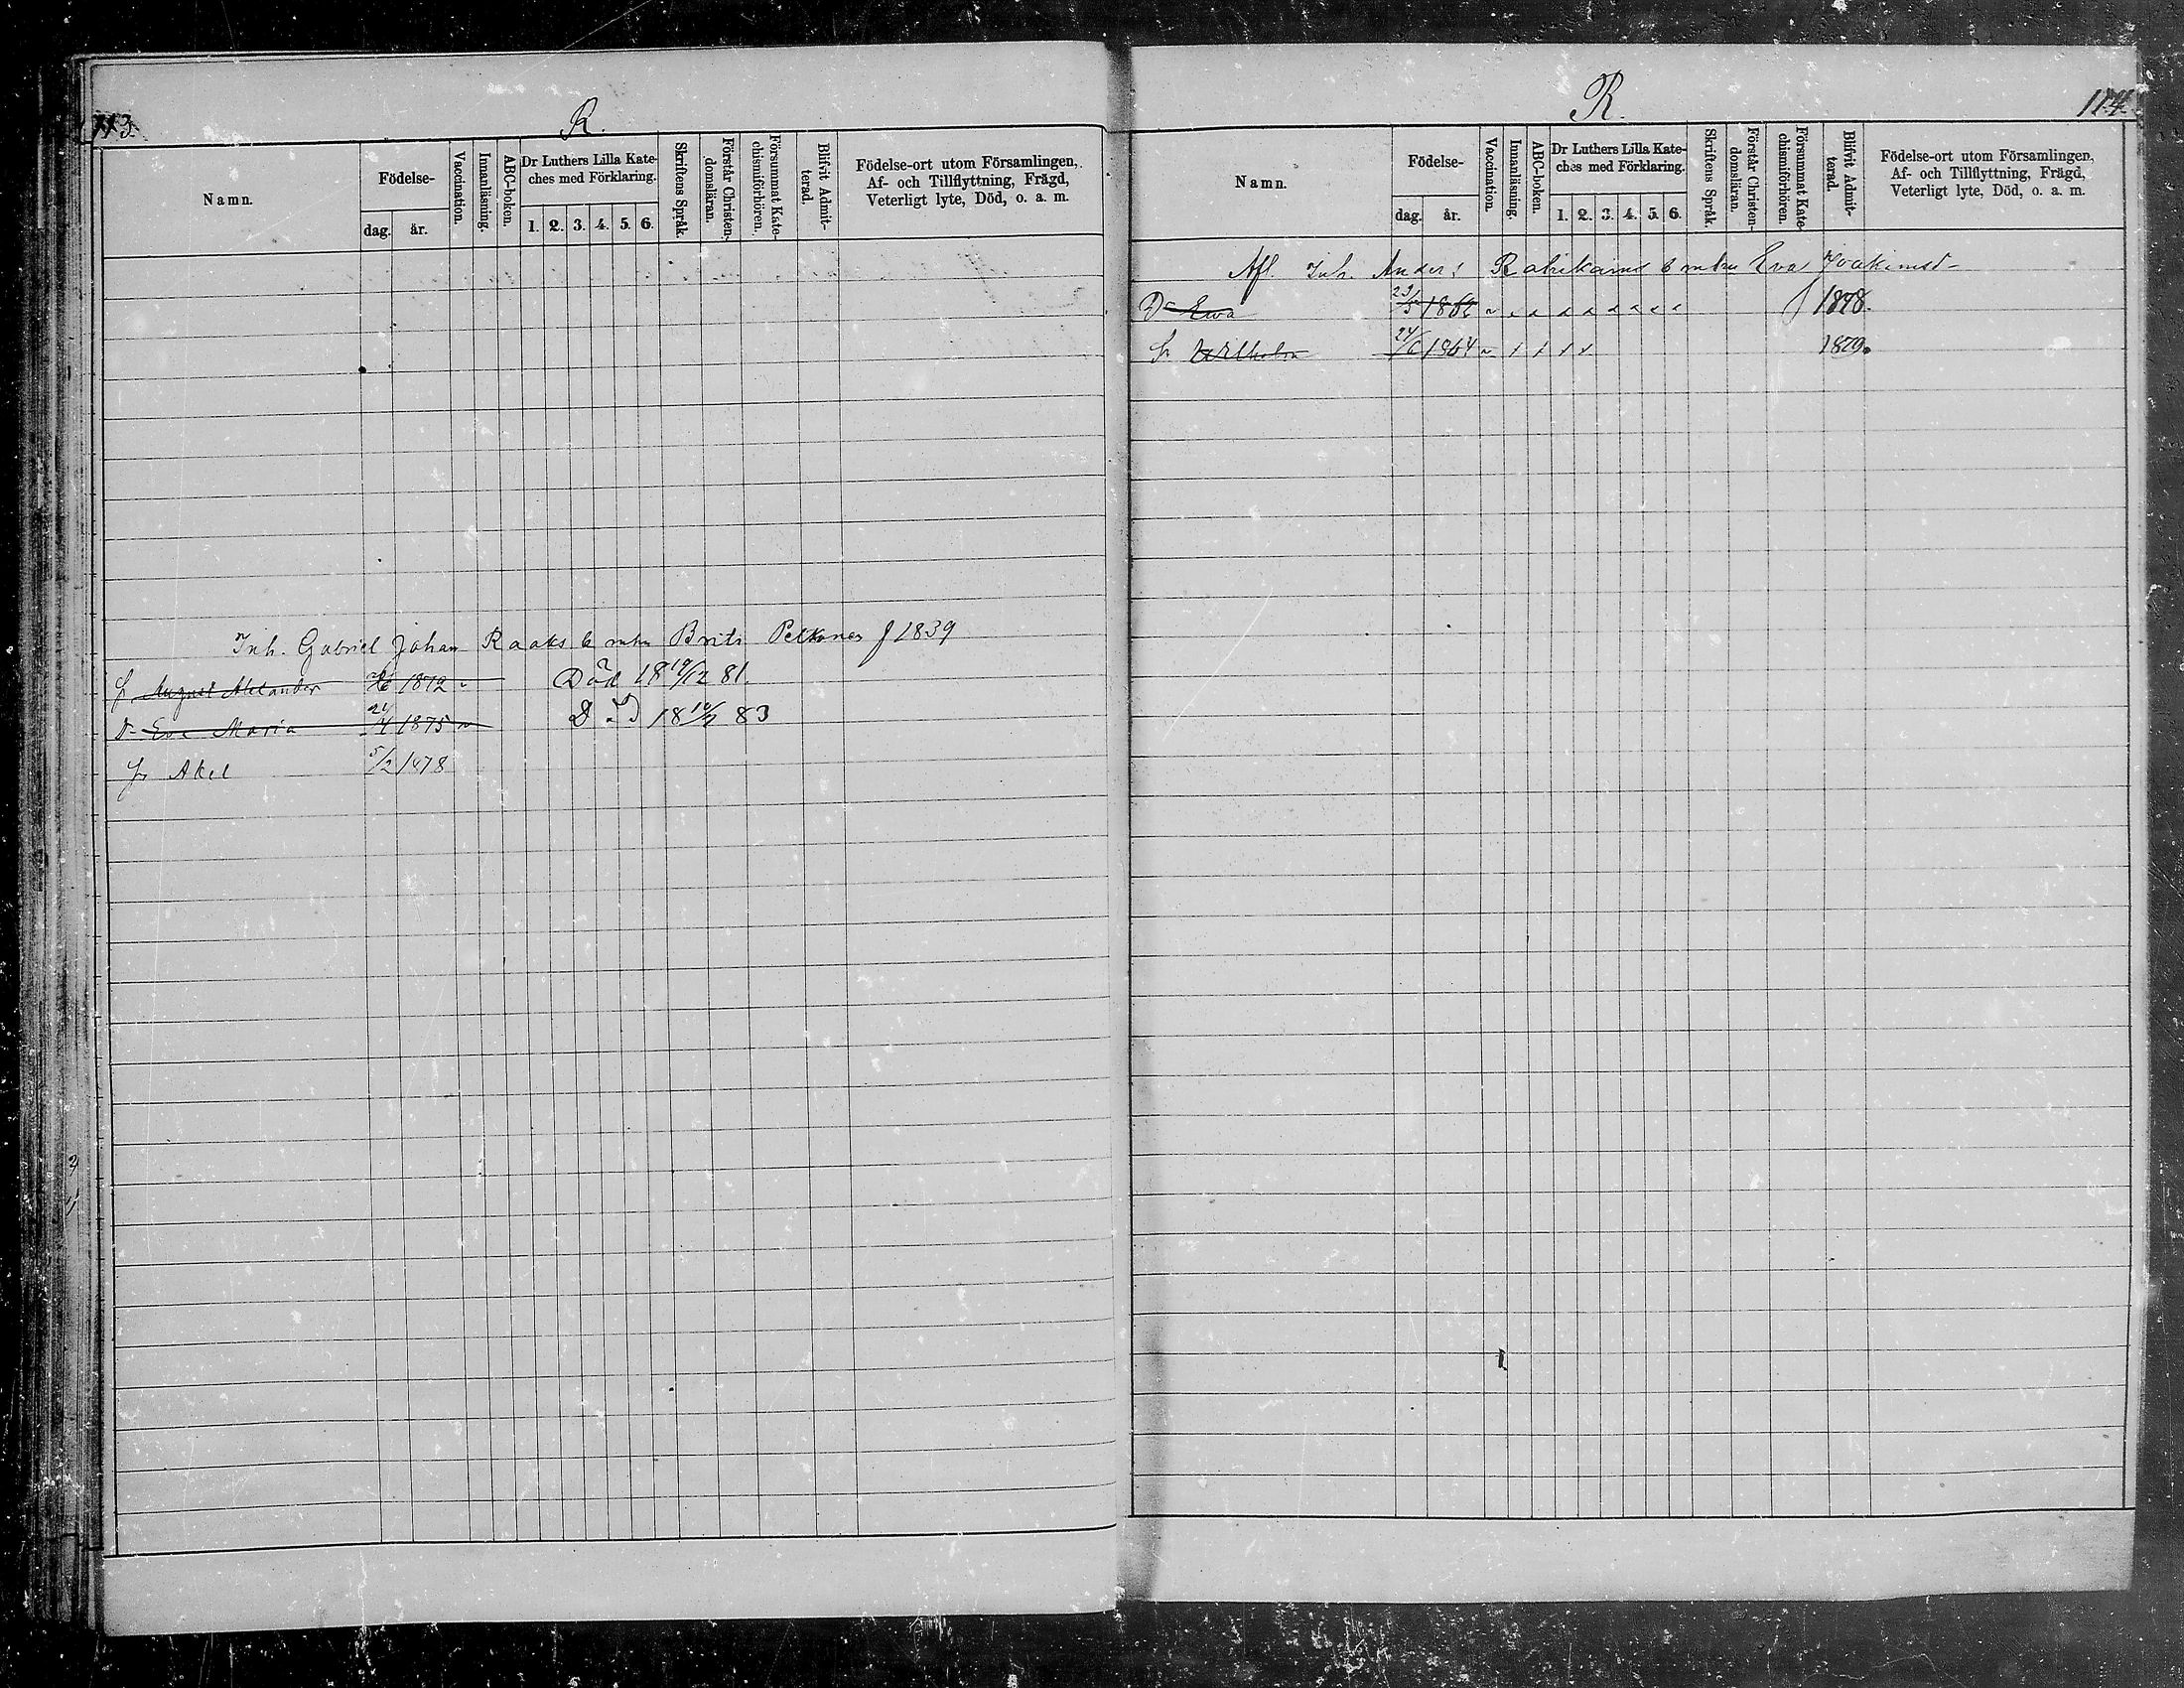 113.
R.
Namn.
Födelse-
dag.
år.
Vaccination.
Innanläsning.
ABC-boken.
Dr Luthers Lilla Kate-
ches med Förklaring.
1. 2. 3. 4. 5. 6.
Skriftens Språk.
Förstår Christen-
domsläran.
Försummat Kate-
chismiförhören.
Blifvit Admit-
terad.
Födelse-ort utom Församlingen,
Af- och Tillflyttning, Frägd,
Veterligt lyte, Död, o. a. m.
Inh. Gabriel Johan Raaks o mhu Brita Pelkonen f 1839
August Alexander 1872 Död 18 19/12 81.
Dr Eva Maria 24/4 1875 Död 18 83
Axel 5/2 1878
R.
114.
Namn.
Födelse-
dag.
år.
Vaccination.
Innanläsning.
ABC-boken.
Dr Luthers Lilla Kate-
ches med Förklaring.
1. 2. 3. 4. 5. 6.
Skriftens Språk.
Förstår Christen-
domsläran.
Försummat Kate-
chismiförhören.
Blifvit Admit-
terad.
Födelse-ort utom Församlingen,
Af- och Tillflyttning, Frägd,
Veterligt lyte, Död, o. a. m.
Afl. Inh. Anders o mhu Eva Joakimsd
Dr Ewa 1862 1878.
Wilhelm 24/6 1864 1879.